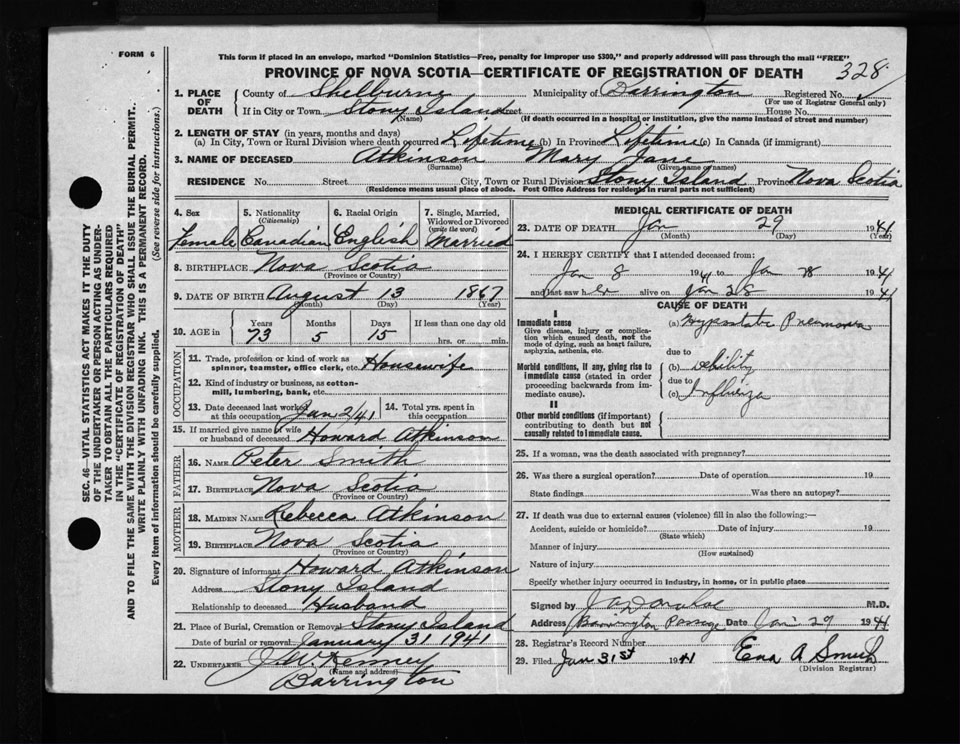 FORM 6
This form if placed in an envelope, marked "Dominion Statistics—Free, penalty for improper use $300," and properly addressed will pass through the mail "FREE"
PROVINCE OF NOVA SCOTIA—CERTIFICATE OF REGISTRATION OF DEATH 328
1. PLACE OF DEATH County of Shelburne Municipality of Barrington Registered No.
(For use of Registrar General only)
If in City or Town Stony Island Street House No.
(Name) (If death occurred in a hospital or institution, give the name instead of street and number)
2. LENGTH OF STAY (in years, months and days)
(a) In City, Town or Rural Division where death occurred Lifetime (b) In Province Lifetime (c) In Canada (if immigrant)
3. NAME OF DECEASED Atkinson Mary Jane
(Surname) (Given name or names)
RESIDENCE No. Street City, Town or Rural Division Stony Island Province Nova Scotia
(Residence means usual place of abode. Post Office Address for residents in rural parts not sufficient)
4. Sex Female
5. Nationality (Citizenship) Canadian
6. Racial Origin English
7. Single, Married, Widowed or Divorced (write the word) Married
8. BIRTHPLACE Nova Scotia
(Province or Country)
9. DATE OF BIRTH August 13 1867
(Month) (Day) (Year)
10. AGE in Years Months Days If less than one day old
73 5 15 hrs. or min.
OCCUPATION
11. Trade, profession or kind of work as spinner, teamster, office clerk, etc. Housewife
12. Kind of industry or business, as cotton-mill, lumbering, bank, etc.
13. Date deceased last worked at this occupation Jan 2/41
14. Total yrs. spent in this occupation
15. If married give name of wife or husband of deceased Howard Atkinson
FATHER
16. NAME Peter Smith
17. BIRTHPLACE Nova Scotia
(Province or Country)
MOTHER
18. MAIDEN NAME Rebecca Atkinson
19. BIRTHPLACE Nova Scotia
(Province or Country)
20. Signature of informant Howard Atkinson
Address Stony Island
Relationship to deceased Husband
21. Place of Burial, Cremation or Removal Stony Island
Date of burial or removal January 31 1941
22. UNDERTAKER J. W. Kenney
(Name and address)
Barrington
MEDICAL CERTIFICATE OF DEATH
23. DATE OF DEATH Jan 29 1941
(Month) (Day) (Year)
24. I HEREBY CERTIFY that I attended deceased from:
Jan 8 1941 to Jan 28 1941
and last saw her alive on Jan 28 1941
CAUSE OF DEATH
I
Immediate cause
Give disease, injury or complication which caused death, not the mode of dying, such as heart failure, asphyxia, asthenia, etc.
(a) Hypostatic Pneumonia
due to
Morbid conditions, if any, giving rise to immediate cause (stated in order proceeding backwards from immediate cause).
(b) Debility
due to
(c) Influenza
II
Other morbid conditions (if important) contributing to death but not causally related to immediate cause.
25. If a woman, was the death associated with pregnancy?
26. Was there a surgical operation? Date of operation 19
State findings Was there an autopsy?
27. If death was due to external causes (violence) fill in also the following:—
Accident, suicide or homicide? Date of injury 19
(State which)
Manner of injury
(How sustained)
Nature of injury
Specify whether injury occurred in industry, in home, or in public place
Signed by M.D.
Address Barrington Passage Date Jan 29 1941
28. Registrar's Record Number
29. Filed Jan 31st 1941 Ena A Smith
(Division Registrar)
SEC. 46—VITAL STATISTICS ACT MAKES IT THE DUTY
OF THE UNDERTAKER OR PERSON ACTING AS UNDER-
TAKER TO OBTAIN ALL THE PARTICULARS REQUIRED
IN THE "CERTIFICATE OF REGISTRATION OF DEATH"
AND TO FILE THE SAME WITH THE DIVISION REGISTRAR WHO SHALL ISSUE THE BURIAL PERMIT.
WRITE PLAINLY WITH UNFADING INK. THIS IS A PERMANENT RECORD.
Every item of information should be carefully supplied. (See reverse side for instructions.)